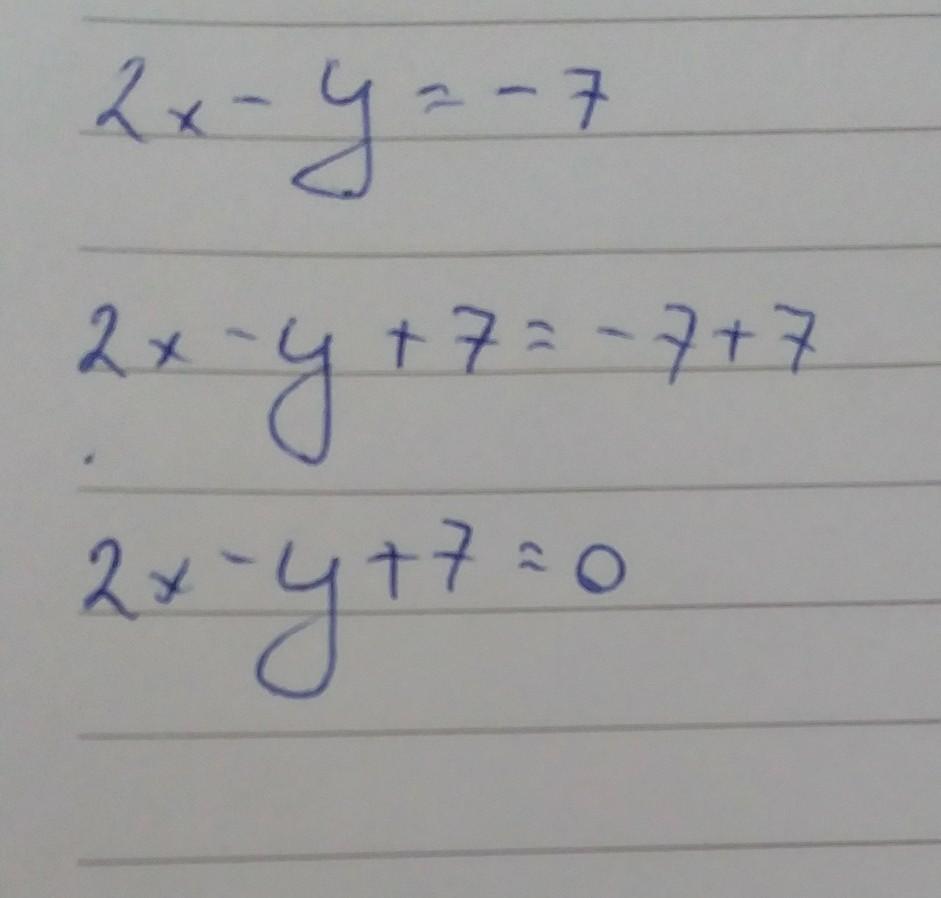 2x - y = - 7
2x - y + 7 = - 7 + 7
2x - y + 7 = 0